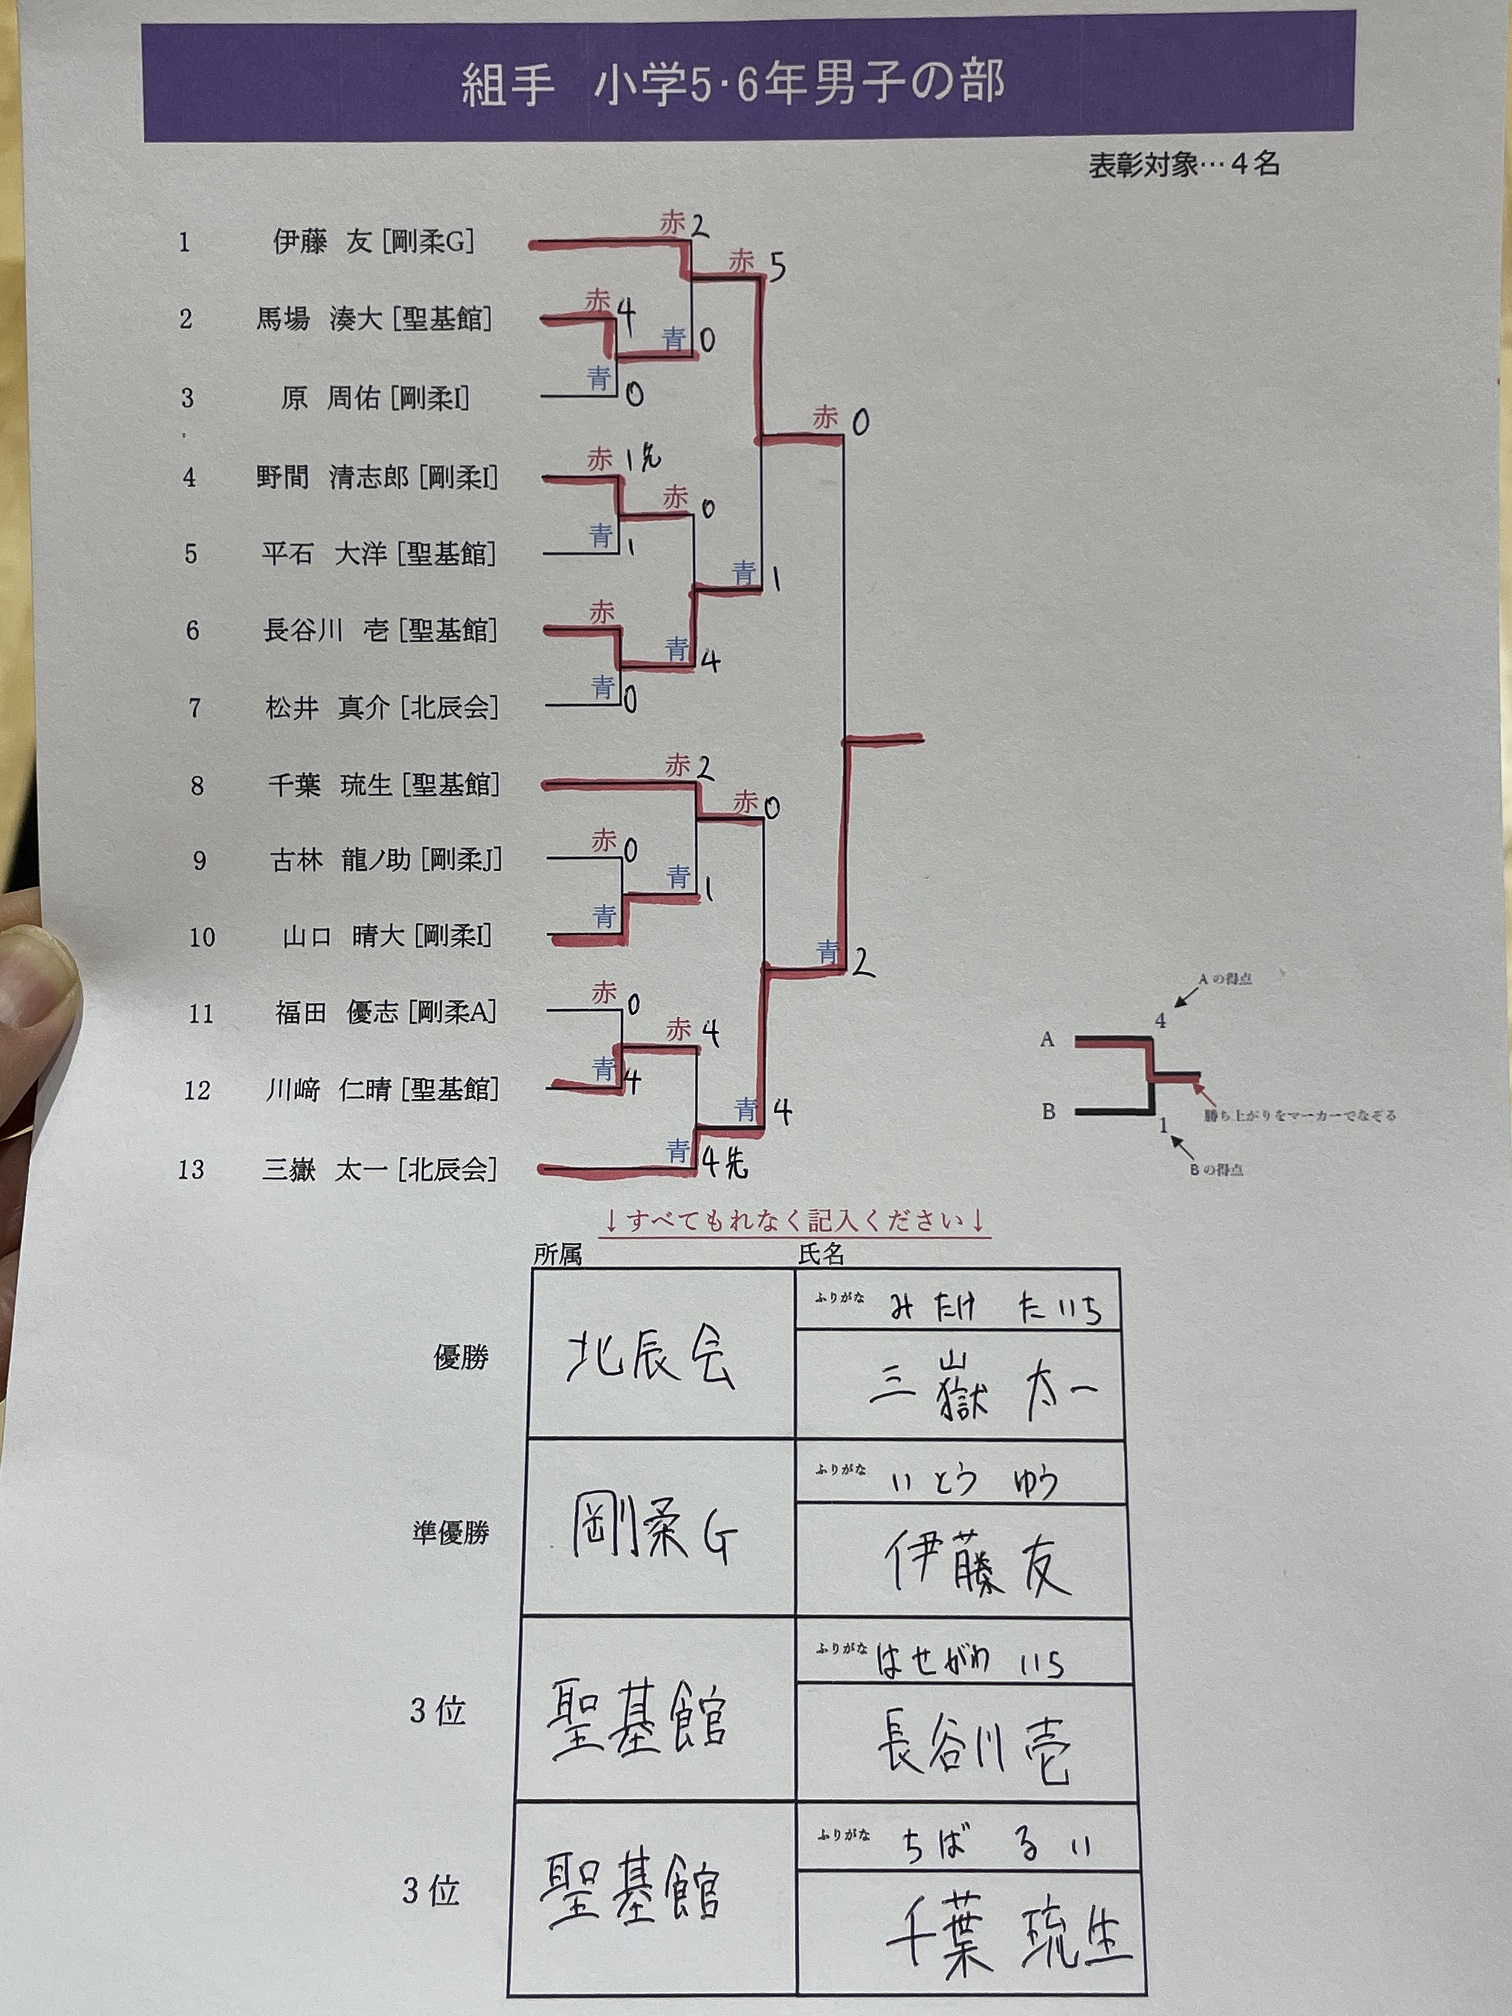 組手 小学5・6年男子の部
表彰対象…4名
1 伊藤 友 [剛柔G] 赤 2
赤 5
2 馬場 湊大 [聖基館] 赤 4
青 0
3 原 周佑 [剛柔I] 青 0
赤 0
4 野間 清志郎 [剛柔I] 赤 1先
赤 0
5 平石 大洋 [聖基館] 青 1
青 1
6 長谷川 壱 [聖基館] 赤
青 4
7 松井 真介 [北辰会] 青 0
8 千葉 琉生 [聖基館] 赤 2
赤 0
9 古林 龍ノ助 [剛柔J] 赤 0
青 1
10 山口 晴大 [剛柔I] 青
青 2
11 福田 優志 [剛柔A] 赤 0
赤 4
12 川﨑 仁晴 [聖基館] 青 4
青 4
13 三嶽 太一 [北辰会] 青 4先
Aの得点
4
A
勝ち上がりをマーカーでなぞる
B
1
Bの得点
↓すべてもれなく記入ください↓
所属 氏名
優勝 北辰会 ふりがな みたけ たいち
三嶽 太一
準優勝 剛柔G ふりがな いとう ゆう
伊藤 友
3位 聖基館 ふりがな はせがわ いち
長谷川 壱
3位 聖基館 ふりがな ちば るい
千葉 琉生